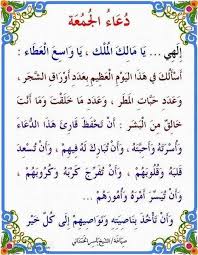 دُعَاءُ الْجُمُعَة
إِلٰهِي ... يَا مَالِكَ الْمُلْكِ ، يَا وَاسِعَ الْعَطَاءِ :
أَسْأَلُكَ فِي هَذَا الْيَوْمِ الْعَظِيمِ بِعَدَدِ أَوْرَاقِ الشَّجَرِ ،
وَعَدَدِ حَبَّاتِ الْمَطَرِ ، وَعَدَدِ مَا خَلَقْتَ وَمَا أَنْتَ
خَالِقٌ مِنَ الْبَشَرِ : أَنْ تَحْفَظَ قَارِئَ هَذَا الدُّعَاءِ
وَأُسْرَتَهُ وَأَحِبَّتَهُ ، وَأَنْ تُبَارِكَ لَهُ فِيهِمْ ، وَأَنْ تُسْعِدَ
قَلْبَهُ وَقُلُوبَهُمْ ، وَأَنْ تُفَرِّجَ كَرْبَهُ وَكُرُوبَهُمْ ،
وَأَنْ تُيَسِّرَ أَمْرَهُ وَأُمُورَهُمْ ...
وَأَنْ تَأْخُذَ بِنَاصِيَتِهِ وَنَوَاصِيهِمْ إِلَى كُلِّ خَيْرٍ
صياغة / الشيخ